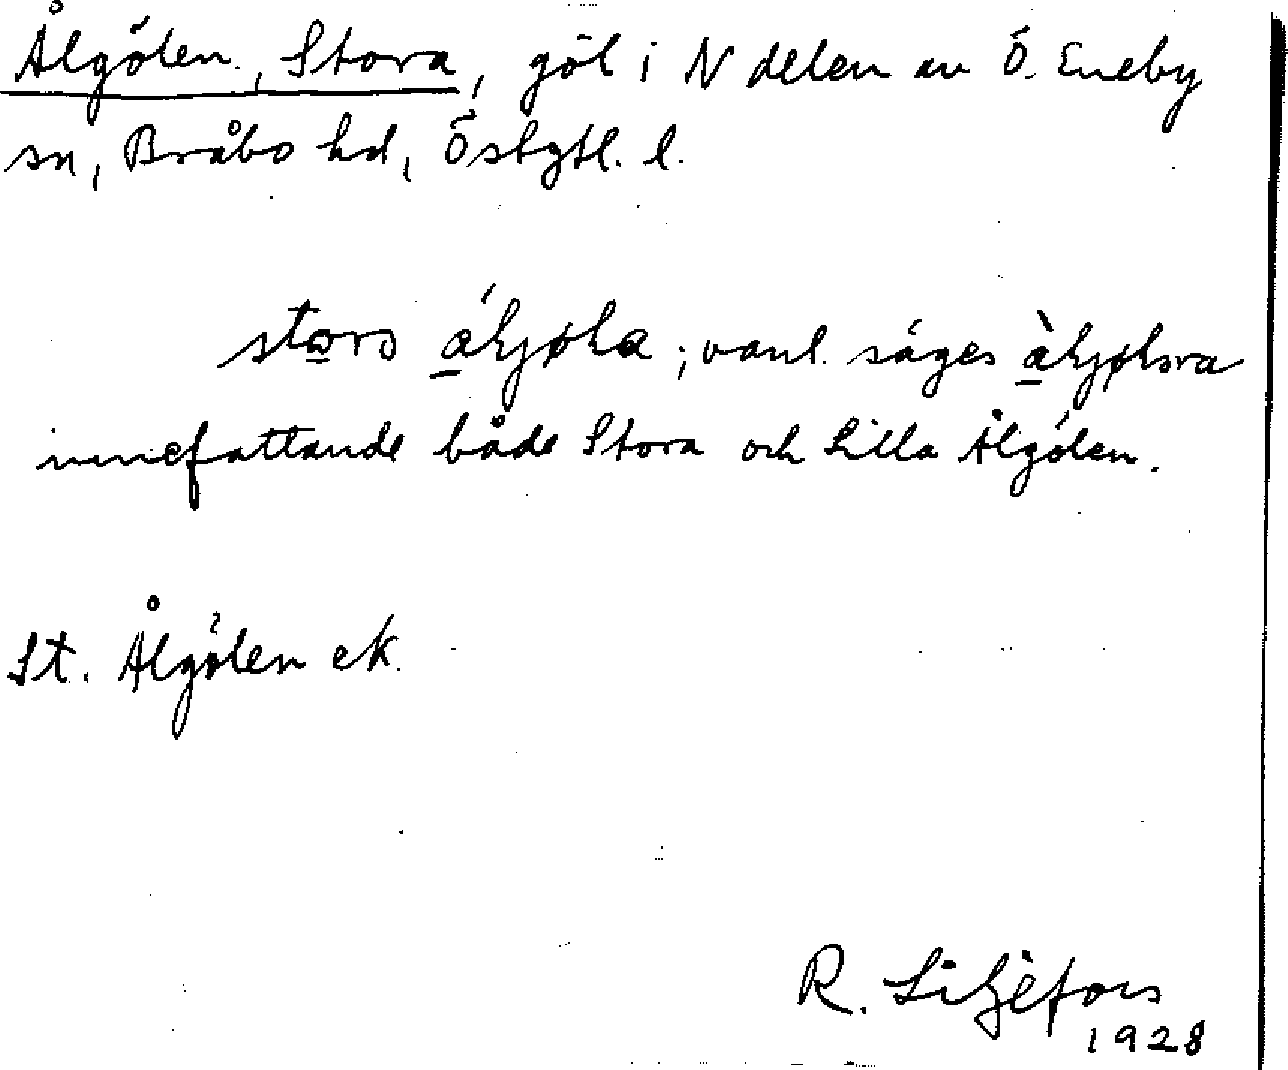 Ålgölen, Stora, göl i N delen av Ö. Eneby
sn, Bråbo hd, Östgtl. l.
; vanl. säges
innefattande både Stora och Lilla Ålgölen.
St. Ålgölen ek.
R. Liljefors
1928